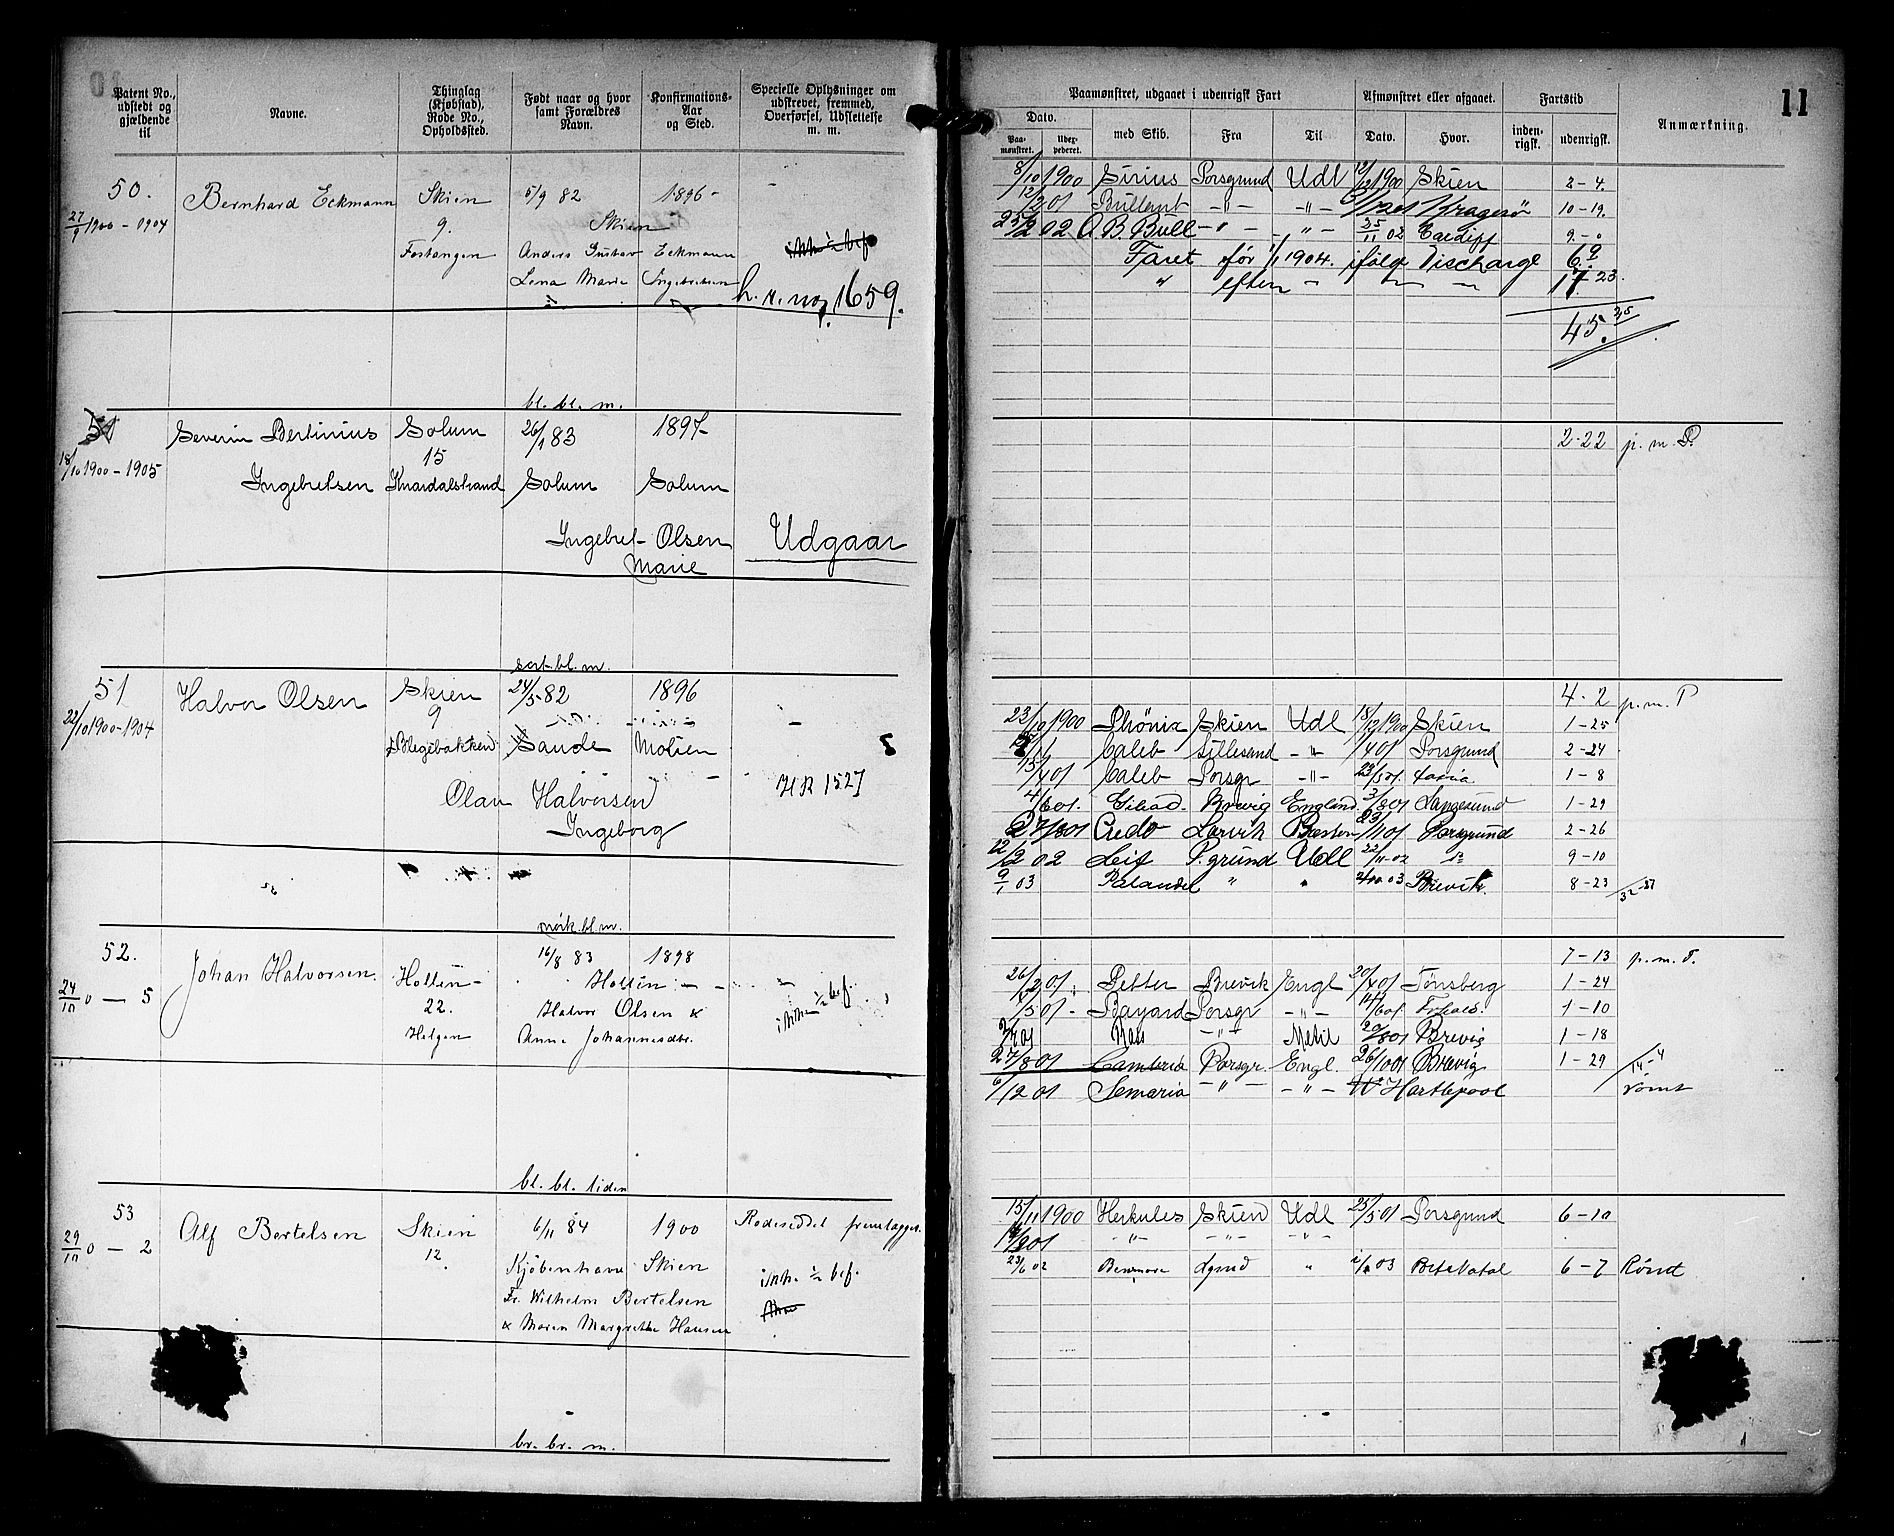 Patent No., udstedt og gjældende til
Navne.
Thinglag (Kjøbstad), Rode No., Opholdssted.
Født naar og hvor samt Forældres Navn.
Konfirmations-Aar og Sted.
Specielle Oplysninger om udskrevet, fremmed, Overførsel, Udslettelse m. m.
50.
27/9 1900 - 1904
Bernhard Eckmann
Skien
9.
5/9 82
1896 -
Skien
Anders Gustav Eckmann
Lena Marie Ingebretsen
h. r. no, 1659.
bl. bl. m.
51
18/10 1900 - 1905
Severin Bertinius
Ingebretsen
Solum
15
Knardalstrand
26/1 83
1897-
Solum
Solum
Ingebret Olsen
Marie
Udgaar
sort. bl. m.
51
22/10 1900-1904
Halvor Olsen
Skien
9
Blegebakken
24/5 82
1896
Sande
Olav Halvorsen
Ingeborg
HR 1527
mörk. bl. m.
52.
24/10 0 - 5
Johan Halvorsen.
Hollen -
22.
Helgen
16/8 83
1898
Hollen - -
Halvor Olsen &
Anne Johannesdtr.
bl. bl. liden
53
29/10 0 - 2
Alf Bertelsen
Skien
12.
6/11 84
1900
Kjøbenhavn
Skien
Fr. Wilhelm Bertelsen
& Maren Margrethe Hansen
Rodeseddel fremlagges.
br. br. m.
11
Paamønstret, udgaaet i udenrigsk Fart
Afmønstret eller afgaaet.
Fartstid
Anmærkning.
Dato.
Paa-mønstret.
Udex-pederet.
med Skib.
Fra
Til
Dato.
Hvor.
inden-rigsk.
udenrigsk.
8/10 1900 Sirius Porsgrund Udl 1900 Skien 2-4.
Kragerö 10-19.
02 O. B. Bull - " - - " - 25/11 02 Cardiff 9.-0
Faret før 1/1 1904. ifølge Discharge 6.
" efter - 17. 23.
45. 25
2-22 p. m. P.
4-2 p. m. P
23/10 1900 Phönix Skien Udl 18/12 1900 Skien 1-25
Caleb Lillesand - " - Porsgrund 2-24
15/4 01 Caleb Porsgr - " - 1-8
4/6 01. Gilead. Brevig England. 3/8 01 Langesund 1-29
27/8 01 Credo Larvik 23/11 01 Porsgrund 2-26
12/2 02 Leif P.grund Udl 22/11-02 9-10
9/1 03 " 03 Brevik. 8-23
7-13 p. m. P.
26/2 01. Petter Brevik Engl 20/4 01 Tønsberg 1-24
/5 01 - Bayard Porsgr - " - 1-10
- " - 20/8 01 Brevig 1-18
27/8 01 Cambria Porsgr. Engl. 26/10 01 Brevig 1-29 14-4
6/12 01 Semaria - " - - " - Hartlepool rømt
15/11 1900 Herkules Skien Udl 25/5 01 Porsgrund 6-10
- " - - " - - " -
23/6 02 " 03 6-7 Rømt